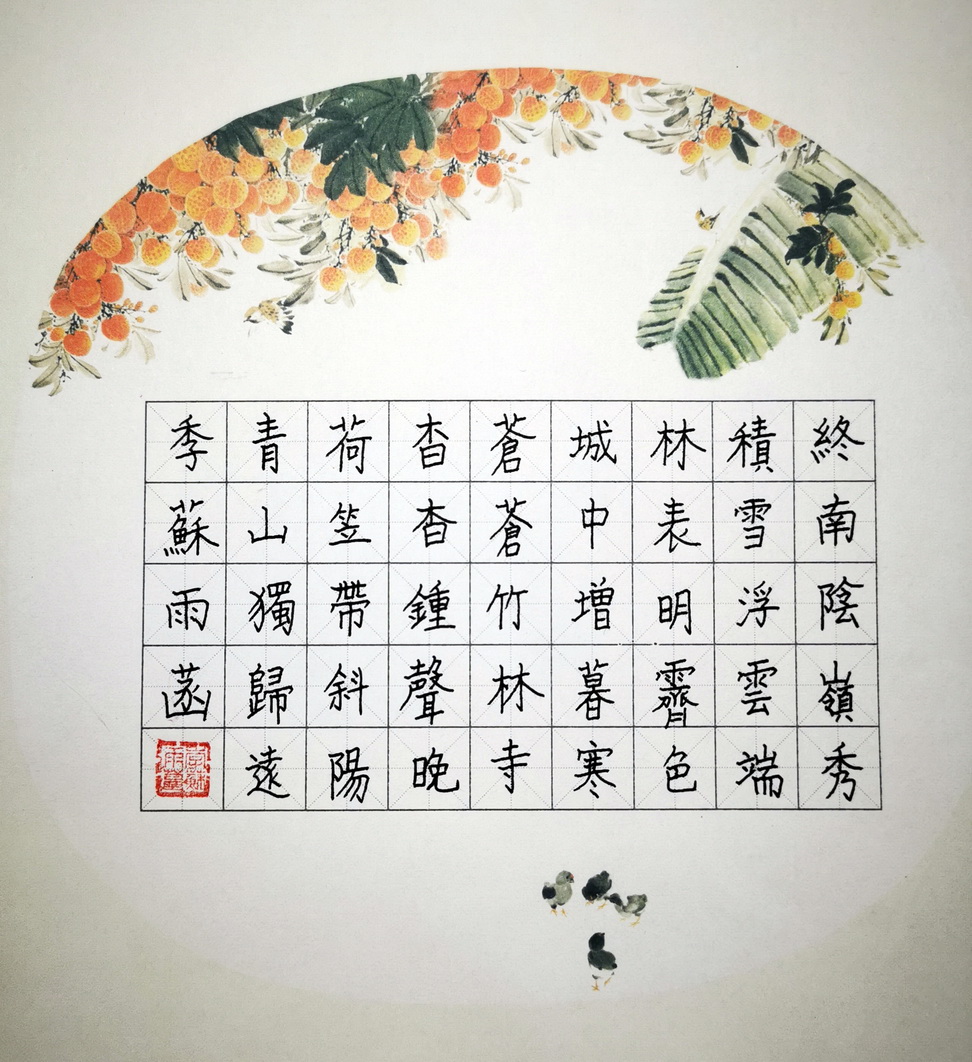 終南陰嶺秀
積雪浮雲端
林表明霽色
城中增暮寒
蒼蒼竹林寺
杳杳鍾聲晚
荷笠帶斜陽
青山獨歸遠
季蘇雨菡